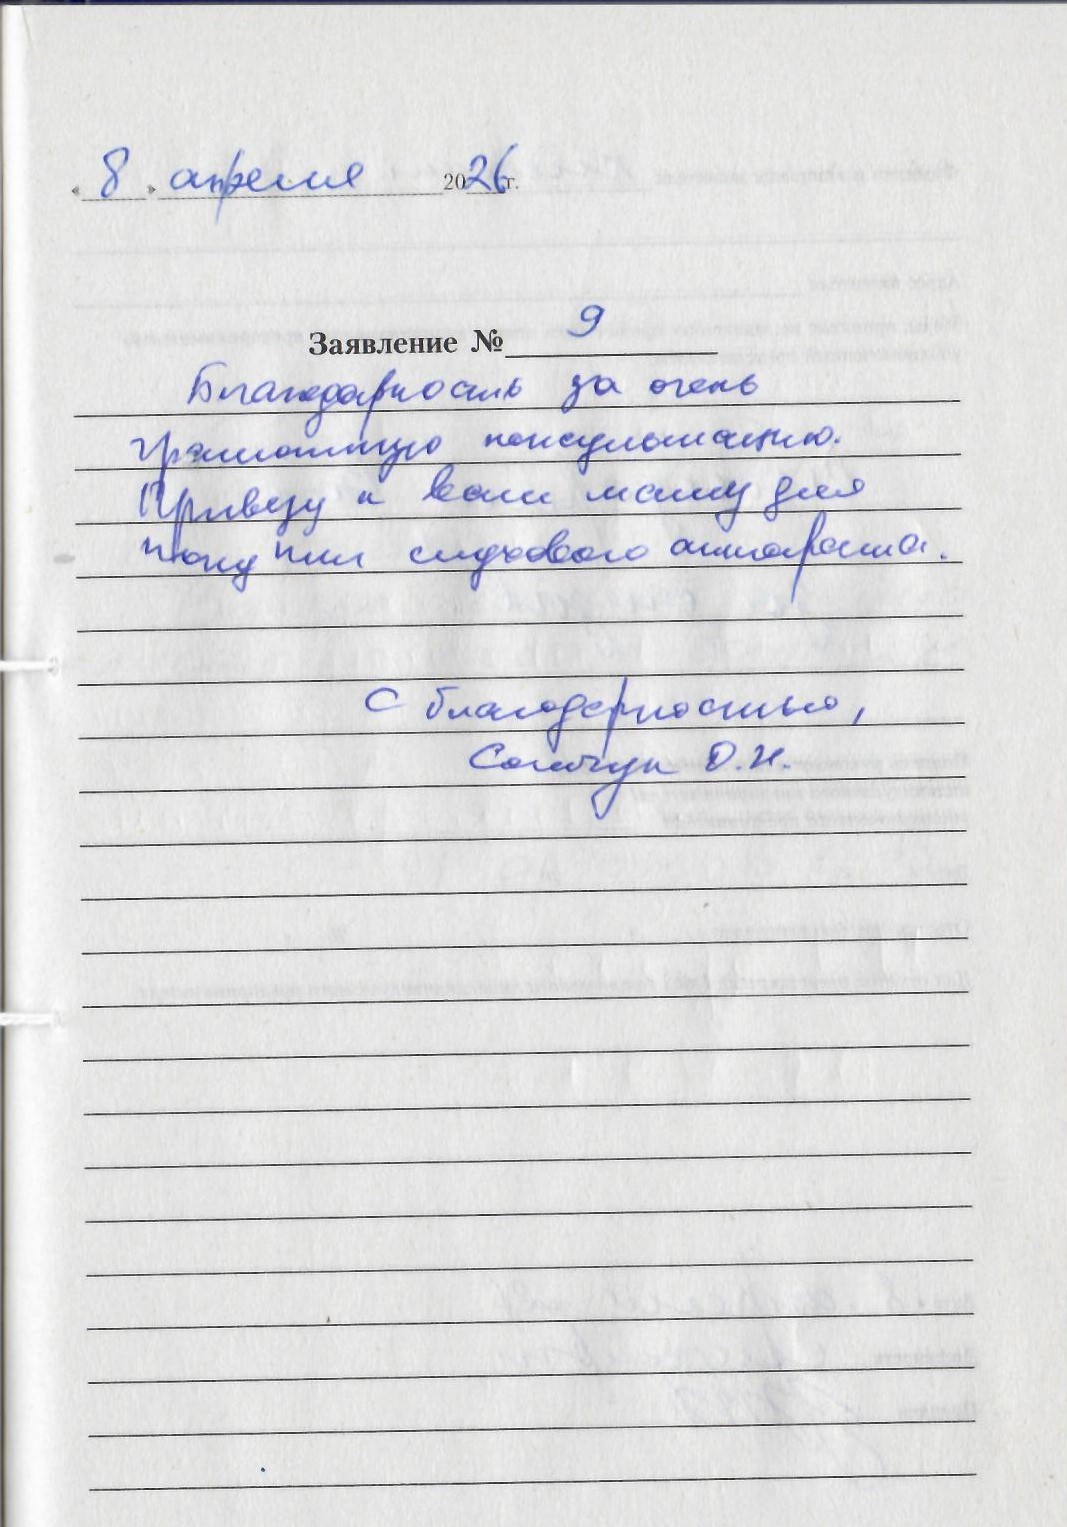 « 8 » апреля 2026 г.
Заявление № 9
Благодарность за очень
грамотную консультацию.
Привезу к вам маму для
покупки слухового аппарата.
С благодарностью,
О.Н.